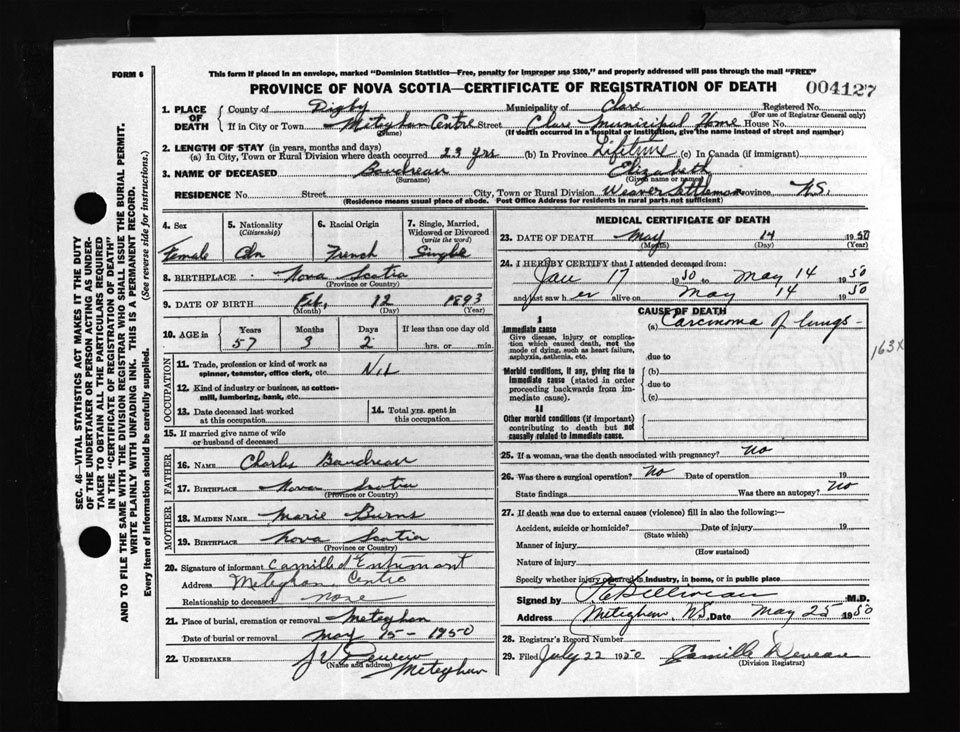 FORM 6
This form if placed in an envelope, marked "Dominion Statistics—Free, penalty for improper use $300," and properly addressed will pass through the mail "FREE"
PROVINCE OF NOVA SCOTIA—CERTIFICATE OF REGISTRATION OF DEATH
004127
1. PLACE OF DEATH
County of Digby Municipality of Clare Registered No.
(For use of Registrar General only)
If in City or Town Meteghan Centre Street Clare Municipal Home House No.
(Name) (If death occurred in a hospital or institution, give the name instead of street and number)
2. LENGTH OF STAY (in years, months and days)
(a) In City, Town or Rural Division where death occurred 23 yrs (b) In Province Lifetime (c) In Canada (if immigrant)
3. NAME OF DECEASED Baudreau Elizabeth
(Surname) (Given name or names)
RESIDENCE No. Street City, Town or Rural Division Weaver Settlement Province N.S.
(Residence means usual place of abode. Post Office Address for residents in rural parts not sufficient)
4. Sex 5. Nationality (Citizenship) 6. Racial Origin 7. Single, Married, Widowed or Divorced (write the word)
Female Cdn French Single
8. BIRTHPLACE Nova Scotia
(Province or Country)
9. DATE OF BIRTH Feb. 12 1893
(Month) (Day) (Year)
10. AGE in Years Months Days If less than one day old
57 3 2 hrs. or min.
OCCUPATION
11. Trade, profession or kind of work as spinner, teamster, office clerk, etc. Nil
12. Kind of industry or business, as cotton-mill, lumbering, bank, etc.
13. Date deceased last worked at this occupation
14. Total yrs. spent in this occupation
15. If married give name of wife or husband of deceased
FATHER
16. NAME Charles Baudreau
17. BIRTHPLACE Nova Scotia
(Province or Country)
MOTHER
18. MAIDEN NAME Marie Burns
19. BIRTHPLACE Nova Scotia
(Province or Country)
20. Signature of informant Camille d'Entremont
Address Meteghan Centre
Relationship to deceased none
21. Place of burial, cremation or removal Meteghan
Date of burial or removal May 15 - 1950
22. UNDERTAKER
(Name and address) Meteghan
MEDICAL CERTIFICATE OF DEATH
23. DATE OF DEATH May 14 1950
(Month) (Day) (Year)
24. I HEREBY CERTIFY that I attended deceased from:
Jan 17 1950 to May 14 1950
and last saw her alive on May 14 1950
CAUSE OF DEATH
I
Immediate cause
Give disease, injury or complication which caused death, not the mode of dying, such as heart failure, asphyxia, asthenia, etc.
(a) Carcinoma of lungs -
due to
163X
Morbid conditions, if any, giving rise to immediate cause (stated in order proceeding backwards from immediate cause).
(b)
due to
(c)
II
Other morbid conditions (if important) contributing to death but not causally related to immediate cause.
25. If a woman, was the death associated with pregnancy? No
26. Was there a surgical operation? No Date of operation 19
State findings Was there an autopsy? No
27. If death was due to external causes (violence) fill in also the following:—
Accident, suicide or homicide? Date of injury 19
(State which)
Manner of injury
(How sustained)
Nature of injury
Specify whether injury occurred in industry, in home, or in public place
Signed by M.D.
Address Meteghan, N.S. Date May 25 1950
28. Registrar's Record Number
29. Filed July 22 1950 Camille Deveau
(Division Registrar)
SEC. 46—VITAL STATISTICS ACT MAKES IT THE DUTY
OF THE UNDERTAKER OR PERSON ACTING AS UNDER-
TAKER TO OBTAIN ALL THE PARTICULARS REQUIRED
IN THE "CERTIFICATE OF REGISTRATION OF DEATH"
AND TO FILE THE SAME WITH THE DIVISION REGISTRAR WHO SHALL ISSUE THE BURIAL PERMIT.
WRITE PLAINLY WITH UNFADING INK. THIS IS A PERMANENT RECORD.
Every item of information should be carefully supplied. (See reverse side for instructions.)